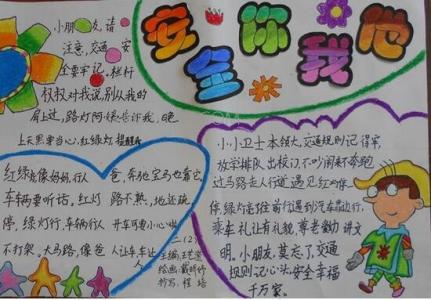 安全你我他
小朋友,请
注意,交通安
全要牢记。栏杆
杈杈对我说,别从我的
肩上过,路灯阿姨告诉我,晚
上天黑要当心,红绿灯提醒我
红绿灯像妈妈,行人
车辆要听话,红灯
停,绿灯行,车辆行人
不打架。大马路,像爸
爸,奔驰宝马也靠它,
路不熟,地还疏,
开车可要小心呀
人让车,车让
人
二(2)
主编:王艺莹
绘画:戴妍婷
抄写:程培
小小卫士本领大,交通规则记得牢,
放学排队出校门,不吵闹来不奔跑
过马路走人行道,遇见红灯停一停,
绿灯亮了往前行,遇到汽车靠边行,
乘车礼让有礼貌,尊老爱幼讲文
明。小朋友,莫忘了,交通
规则记心头,安全幸福
千万家。